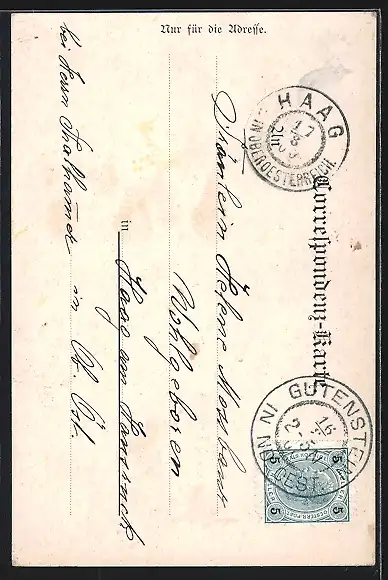 Nur für die Adresse.
Correspondenz-Karte
HAAG
IN OBEROESTERREICH
17
8
GUTENSTEIN IN N. OEST.
16
5 5
5 5
Fräulein Helene
Wohlgeboren
in Haag am Hausruck
bei Herrn in Ob. Öst.